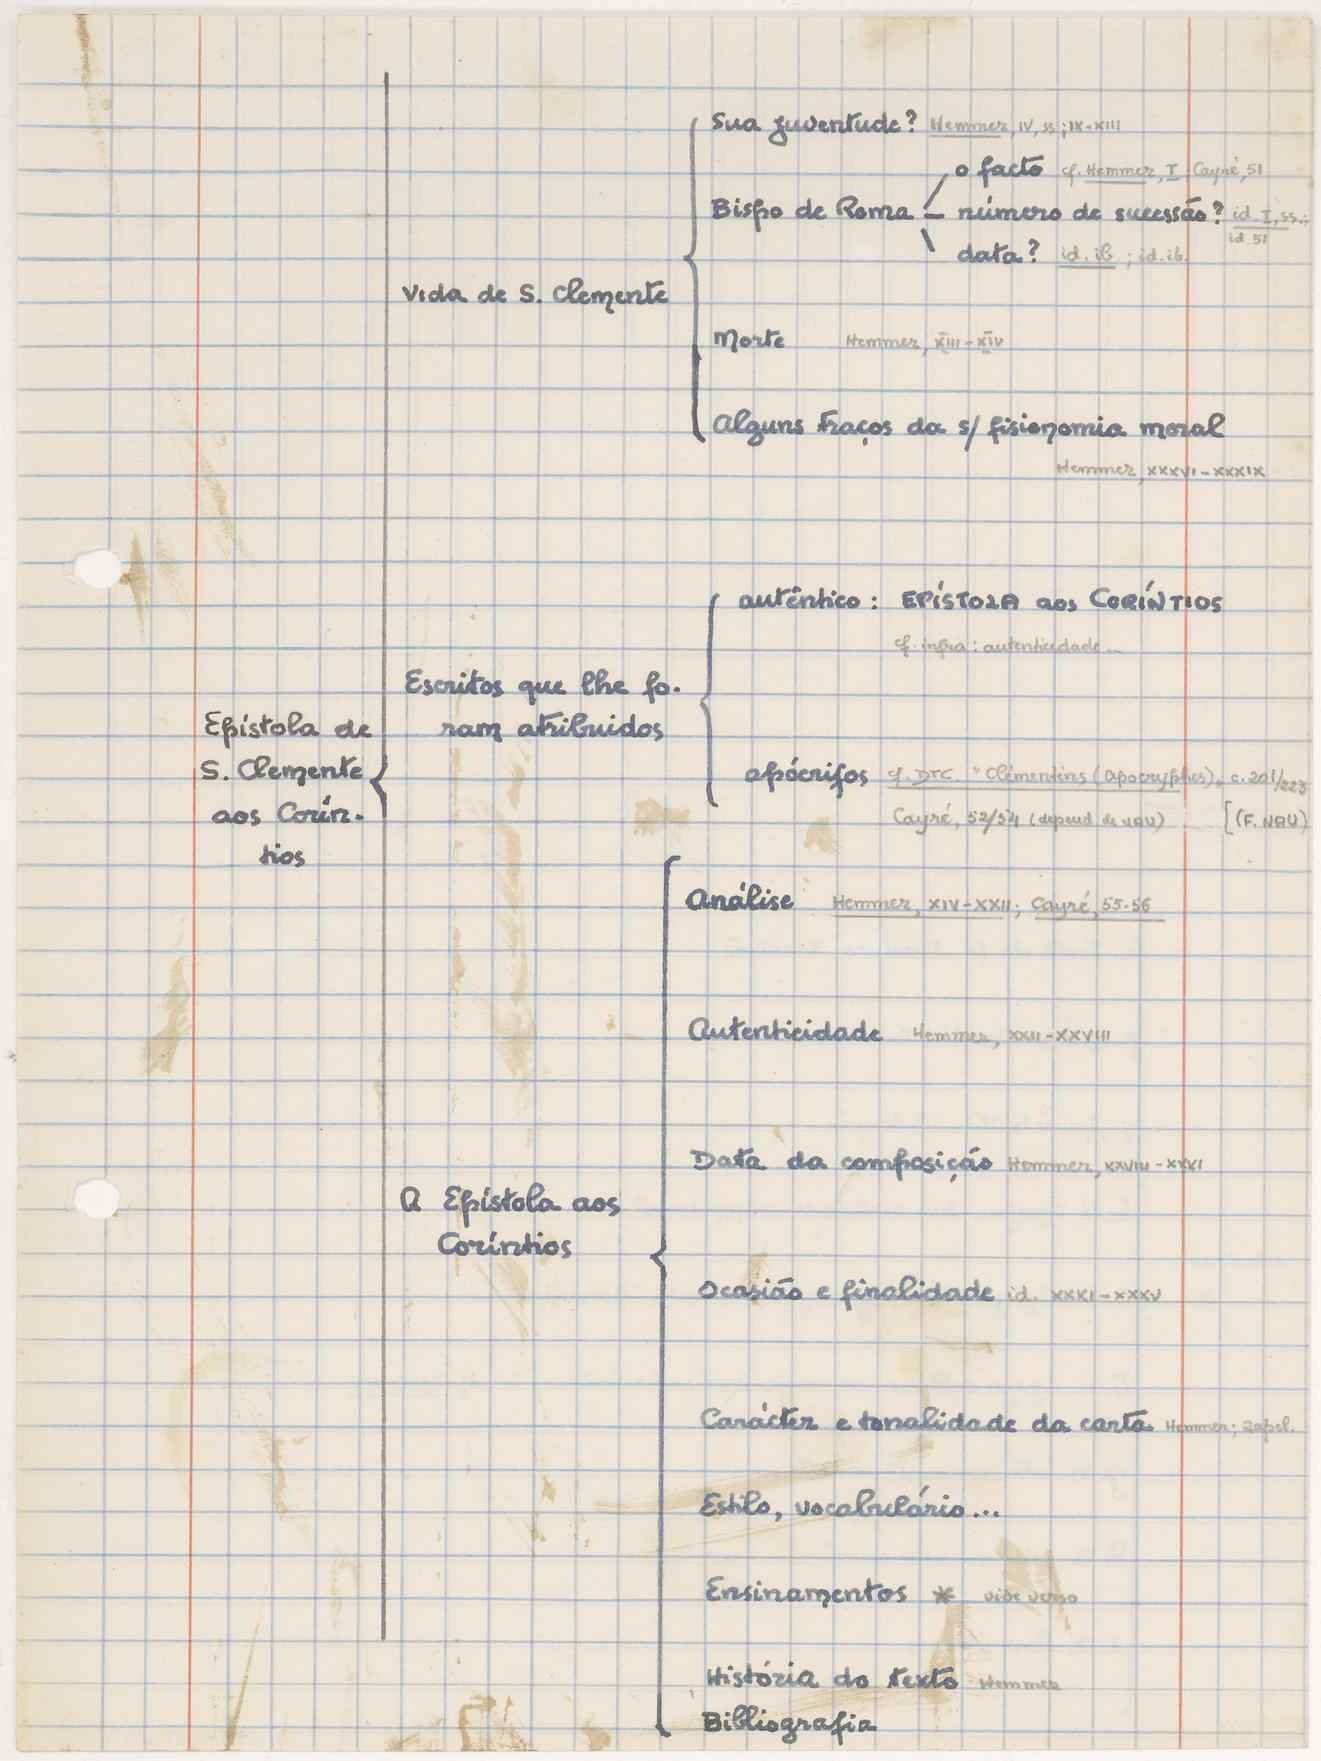 Sua juventude? Hemmer, IV, ss; IX-XIII
o facto cf. Hemmer, I Cayré, 51
Bispo de Roma — número de sucessão? id. I, ss.;
id 51
data? id. ib ; id. ib.
Vida de S. Clemente
Morte Hemmer, XIII-XIV
Alguns traços da s/ fisionomia moral
Hemmer, XXXVI-XXXIX
autêntico: EPÍSTOLA aos CORÍNTIOS
cf. infra: autenticidade...
Escritos que lhe fo-
ram atribuidos
Epístola de
S. Clemente
aos Corín-
tios
apócrifos cf. DTC. "Clémentins (apocryphes), c. 201/223
Cayré, 52/54 (depend de NAU) [(F. NAU)
Análise Hemmer, XIV-XXII; Cayré, 55-56
Autenticidade Hemmer, XXII-XXVIII
Data da composição Hemmer, XXVIII-XXXI
A Epístola aos
Coríntios
Ocasião e finalidade id. XXXI-XXXV
Carácter e tonalidade da carta Hemmer;
Estilo, vocabulário...
Ensinamentos * vide verso
História do texto Hemmer
Bibliografia